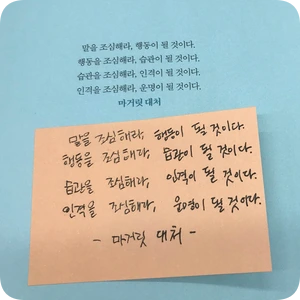 말을 조심해라, 행동이 될 것이다.
행동을 조심해라, 습관이 될 것이다.
습관을 조심해라, 인격이 될 것이다.
인격을 조심해라, 운명이 될 것이다.
마거릿 대처
말을 조심해라, 행동이 될 것이다.
행동을 조심해라, 습관이 될 것이다.
습관을 조심해라, 인격이 될 것이다.
인격을 조심해라, 운명이 될 것이다.
- 마거릿 대처 -